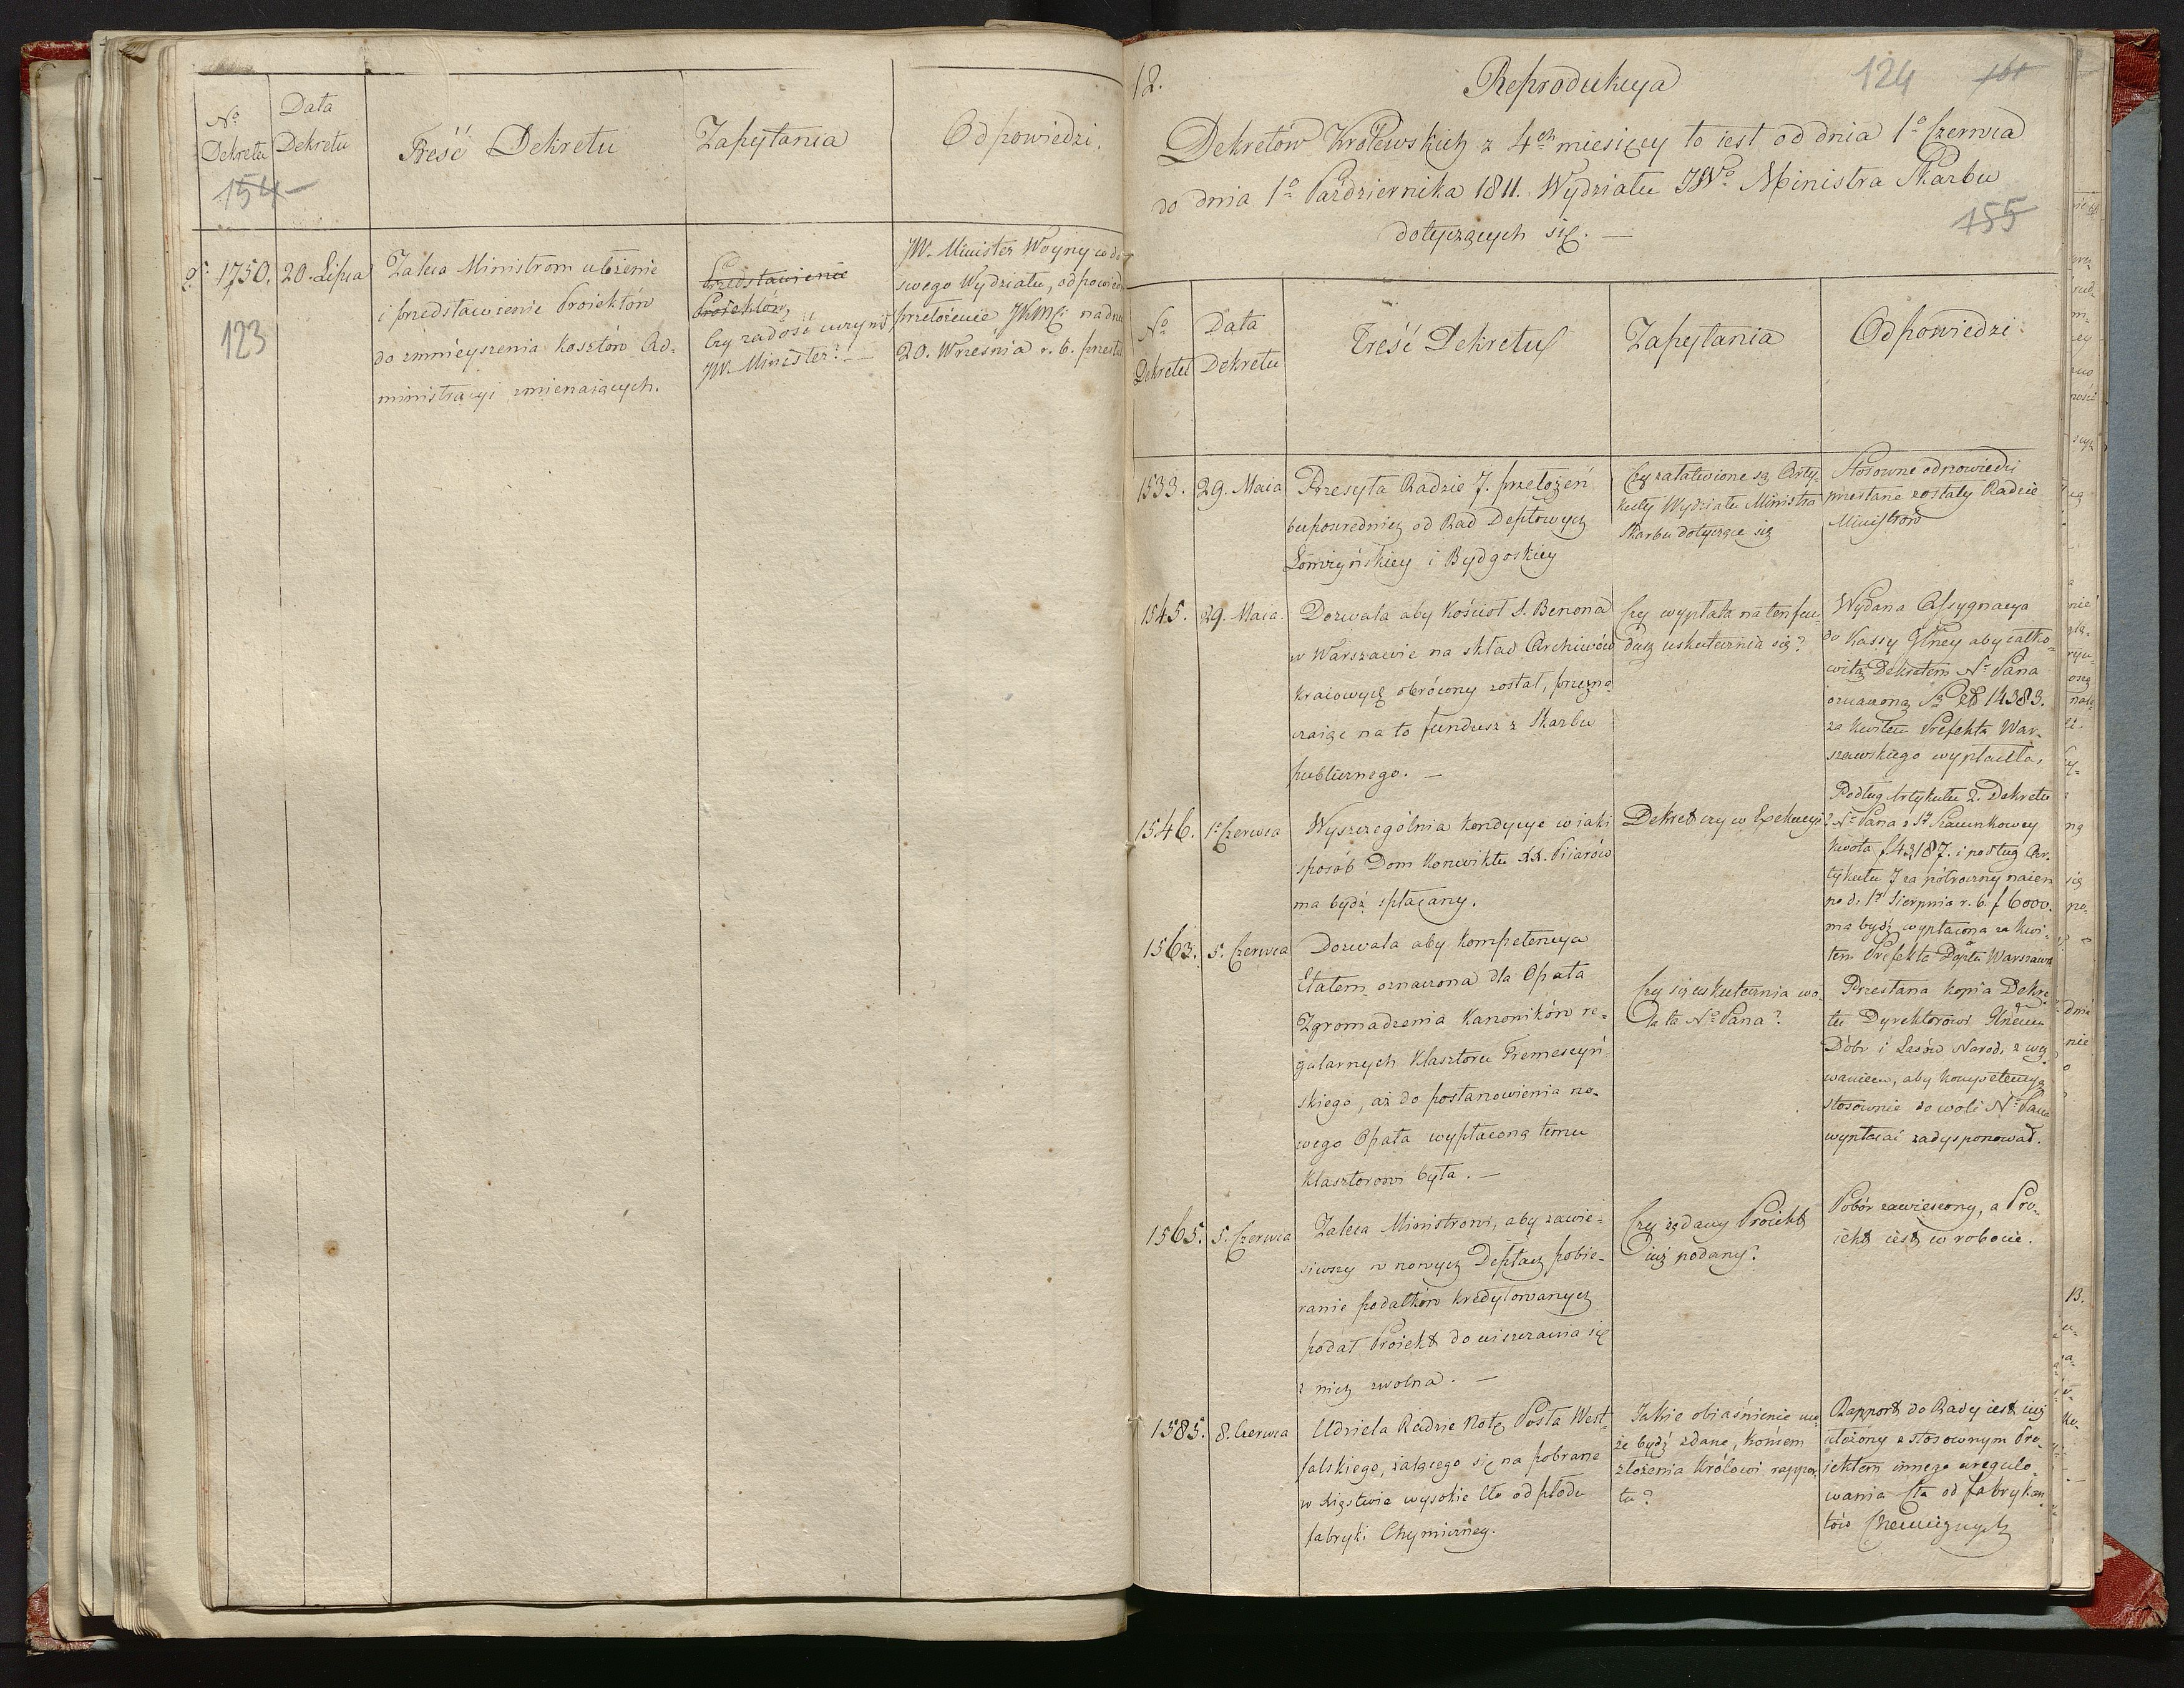 Nº
Dekretu
Data
Dekretu
Treść Dekretu
Zapytania
Odpowiedzi.
154
123
1750.
20. Lipca
Zaleca Ministrom ułożenie
i przedstawienie Proiektów
do zmnieyszenia kosztów Ad-
ministracyi zmierzaiących.
Przedstawienie
Proiektów,
Czy zadość uczynił
JW. Minister? —
JW. Minister Woyny co do
swego Wydziału, odpowiedź
przełożenie JKMci na dniu
20. Wrzesnia r. b. przesłał
12.
124
161
Reprodukcya
Dekretów Królewskich z 4ch miesięcy to iest od dnia 1º Czerwca
do dnia 1º Października 1811. Wydziału JWº Ministra Skarbu
dotyczących się. —
155
Nº
Dekretu
Data
Dekretu
Treść Dekretu
Zapytania
Odpowiedzi
1533.
29. Maia
Przesyła Radzie 7. przełożeń
bezpośrednich od Rad Deptowych
Łomżyńskiey i Bydgoskiey
Czy załatwione są Arty-
kuły Wydziału Ministra
Skarbu dotyczące się
Stosowne odpowiedzi
przesłane zostały Radzie
Ministrów
1545.
29. Maia.
Dozwala aby Kościoł S. Benona
w Warszawie na skład Archiwów
kraiowych obrócony został, przezna-
czaiąc na to fundusz z Skarbu
publicznego. —
Czy wypłata na ten fun-
dusz uskutecznia się?
Wydana Assygnacya
do Kassy Głney aby całko-
witą Dekretem Nº Pana
oznaczoną 14383.
za kwitem Prefekta War-
szawskiego wypłaciła,
1546.
1º Czerwca
Wyszczególnia kondycye w iaki
sposób Dom Konwiktu XX. Piiarów
ma bydź spłacany.
Dekret czy w Expekucyi?
Podług Artykułu 2. Dekretu
Nº Pana z Szacunkowey
kwota f 43187. i podług Ar-
tykułu 7 za półroczny naiem
po d. 1º Sierpnia r. b. f 6000.
ma bydź wypłacona za kwi-
tem Prefekta Dapta Warszaws
1563.
5. Czerwca
Dozwala aby kompetencya
Etatem oznaczona dla Opata
Zgromadzenia Kanoników re-
gularnych Klasztoru Tremeszyń-
skiego, aż do postanowienia no-
wego Opata wypłaconą temu
Klasztorowi była. —
Czy się uskutecznia wo-
la ta Nº Pana?
Przesłana kopia Dekre-
tu Dyrektorowi Głnemu
Dóbr i Lasów Narod. z wez
waniem, aby kompetencyą
stosownie do woli Nº Pana
wypłacać zadysponował.
1565.
5. Czerwca
Zaleca Ministrowi, aby zawie-
siwszy w nowych Deptach pobie-
ranie podatków kredytowanych
podał Proiekt do uiszczania się
z nich zwolna. —
Czy żądany Proiekt
iuż podany?
Pobór zawieszony, a Pro-
iekt iest w robocie.
1585.
8. Czerwca
Udziela Radzie Notę Posła West-
falskiego, żalącego się na pobrane
w Xięstwie wysokie Cło od płodu
fabryki Chymiczney.
Jakie obiaśnienie mo-
że bydź zdane, końcem
złożenia Królowi rappor-
tu?
Rapport do Rady iest iuż
ułożony z stosownym Pro-
iektem innego uregulo-
wania Cła od fabrykan-
tów Chemicznych